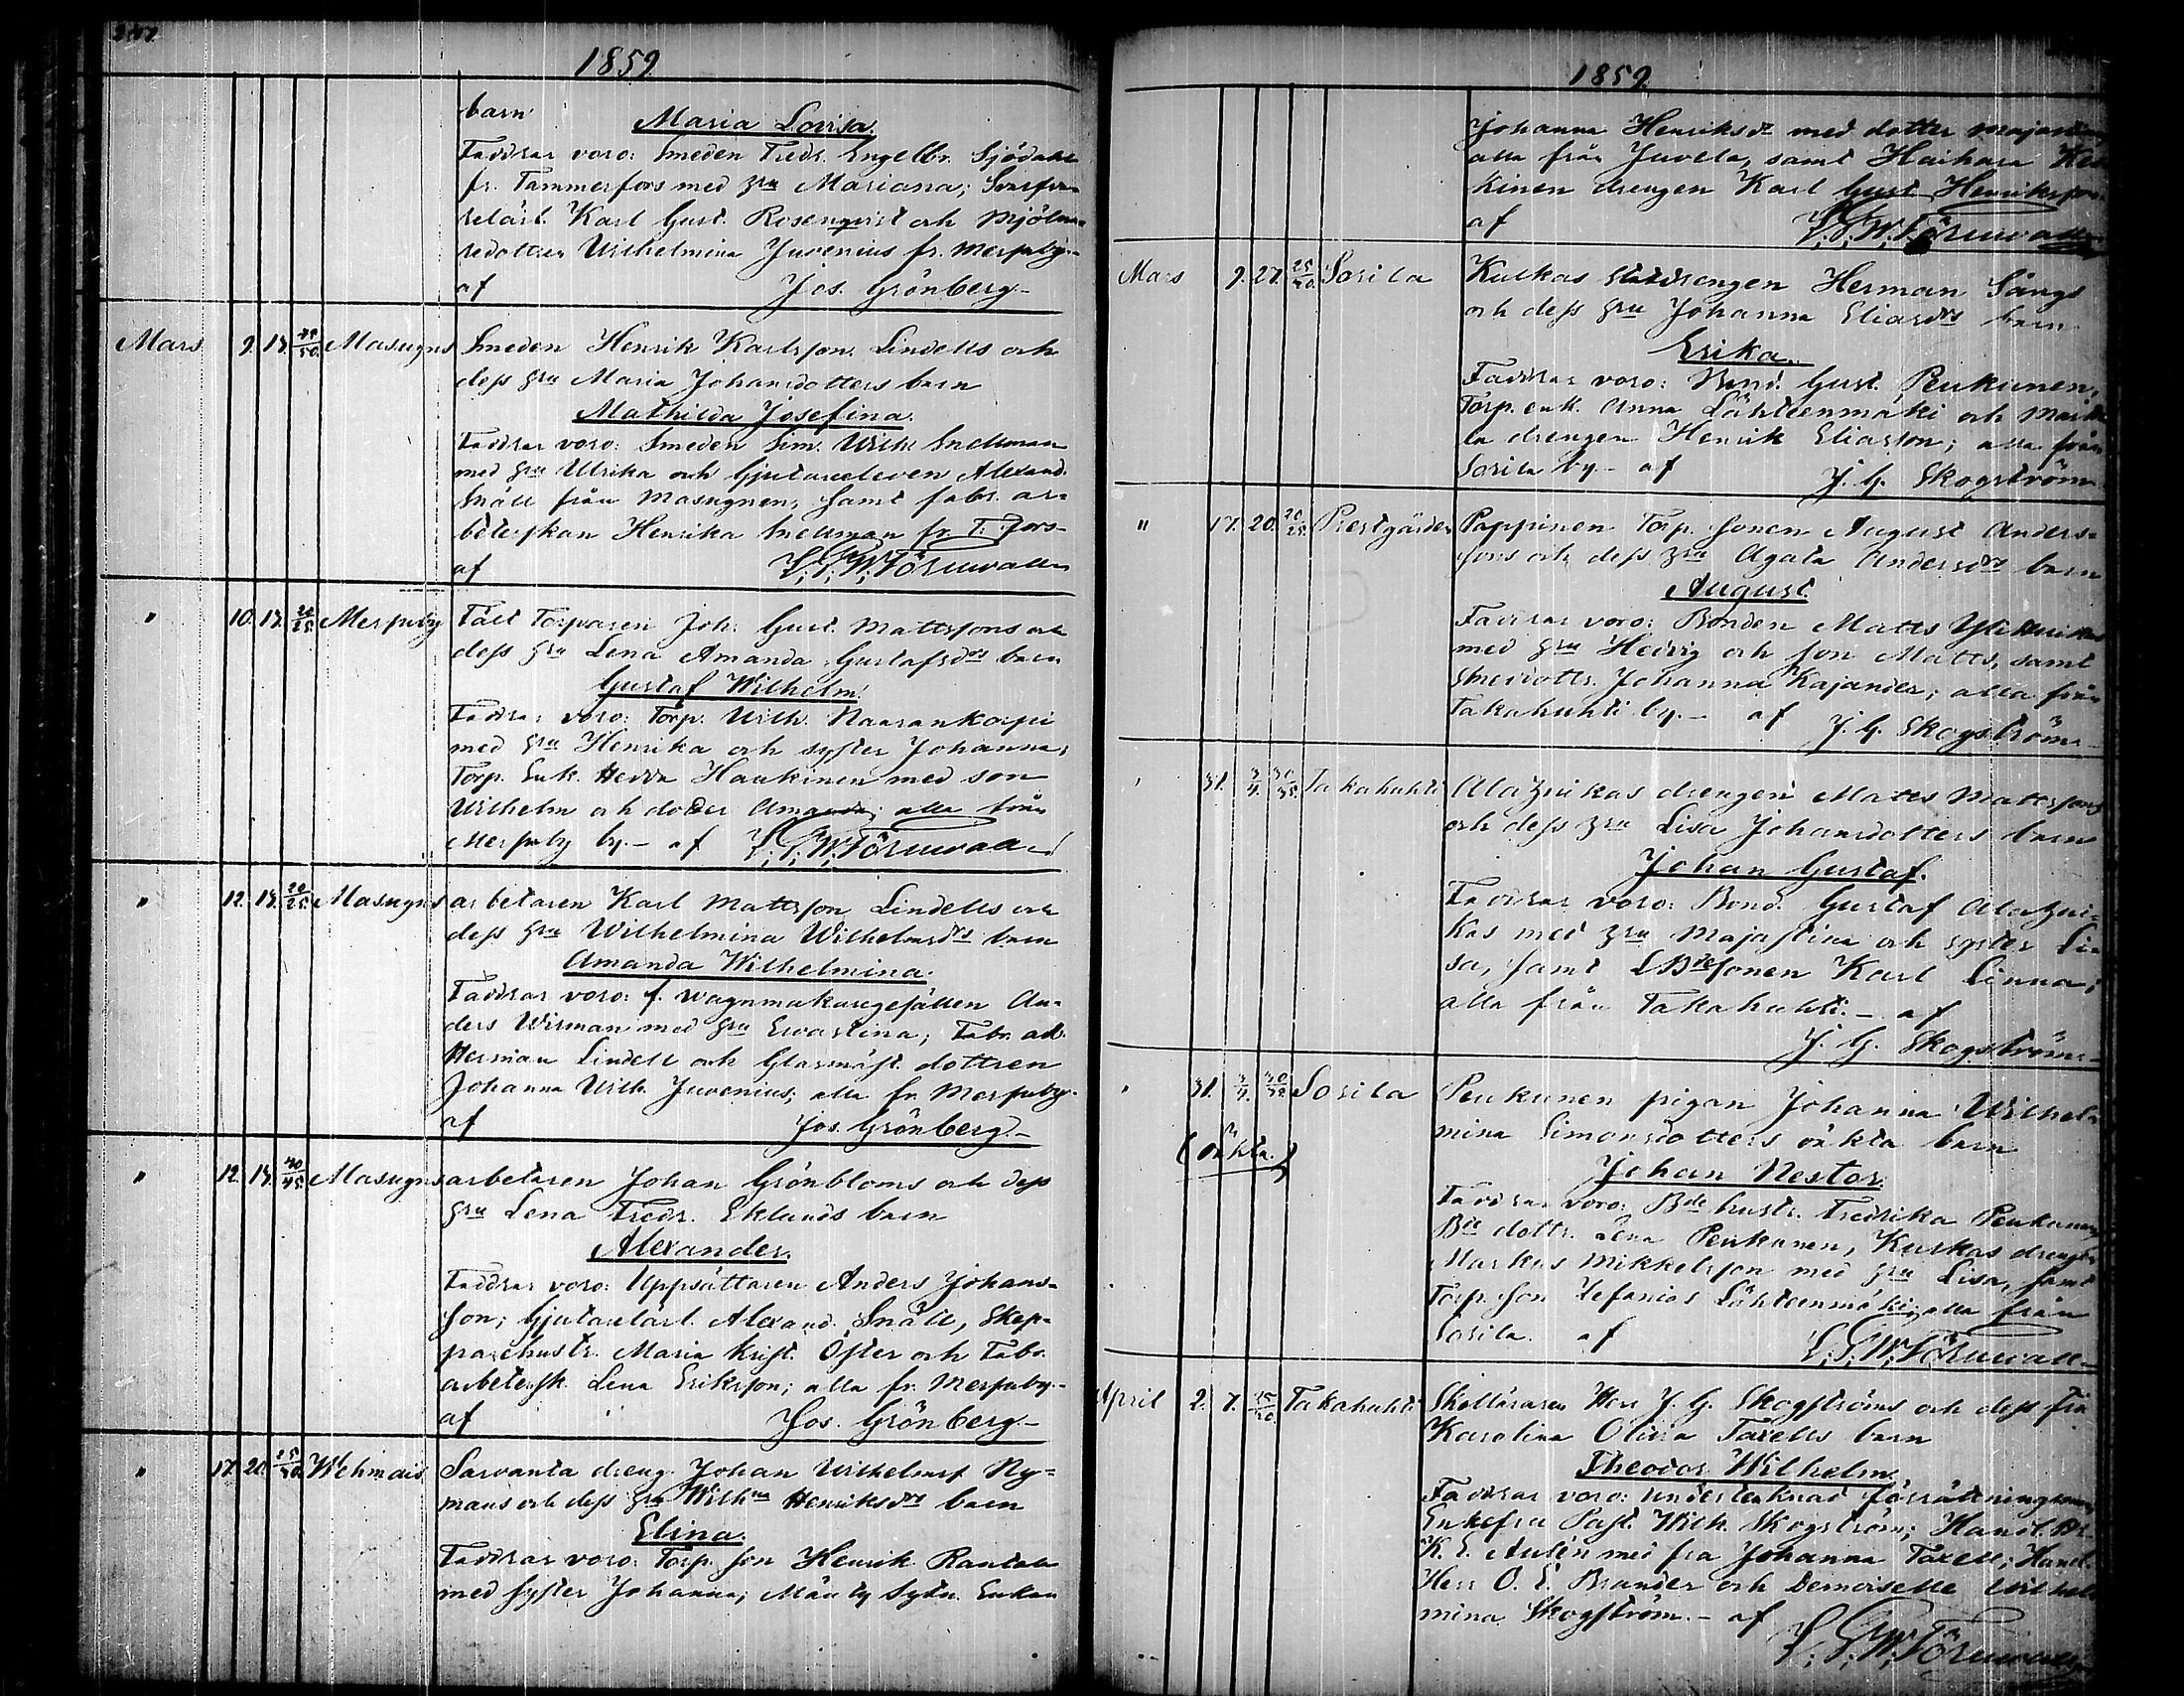 1859.
barn
Maria Lovisa.
Faddrar voro: Smeden Fredr. Engelbr. Sjödahl
fr. Tammerfors med hru Mariana; Svarfva-
relärl. Karl Gust. Rosenqvist och Mjölna-
redottren Wilhelmina Juvenius fr. Messuby.-
af Jos. Grönberg.-
Mars 9. 13. Masugns Smeden Henrik Karlsson Lindells och
dess hru Maria Johansdotters barn
Mathilda Josefina.
Faddrar voro: Smeden Sim. Wilh. Snellman
med hru Ulrika och Gjutareeleven Alexand.
Snäll från Masugnen, samt fabr. ar-
beterskan Henrika Snellman fr. T. Fors-
af L. G. W. Törnwall
" 10. 13. 20/25. Messuby Tält Torparen Joh. Gust. Mattssons och
dess hru Lena Amanda Gustafsdrs barn
Gustaf Wilhelm.
Faddrar voro: Torp. Wilh. Naarankorpi
med hru Henrika och syster Johanna;
Torp. Enk. Hedda Haukinen med son
Wilhelm och dotter Amanda; alla från
Messuby by.- af L. G. W. Törnwall
" 12. 13. 20/25. Masugns arbetaren Karl Mattsson Lindells och
dess hru Wilhelmina Wilhelmsdrs barn
Amanda Wilhelmina.
Faddrar voro: f. wagnmakaregesällen An-
ders Wirman med hru Ewastina; Fabr. arb.
Herman Lindell och Glasmäst. dottren
Johanna Wilh. Juvenius; alla fr. Messuby.
af Jos. Grönberg.-
" 12. 13. 40/45. Masugns arbetaren Johan Grönbloms och dess
hru Lena Fredr. Eklunds barn
Alexander.
Faddrar voro: Uppsättaren Anders Johans-
son; Gjutarelärl. Alexand. Snäll, Skep-
parehustr. Maria Krist. Öster och Fabr.
arbetersk. Lena Eriksson; alla fr. Messuby.-
af Jos. Grönberg.-
" 17. 20. Wehmais Sarvanta dreng. Johan Wilhelmss Ny-
mans och dess hru Wilhna Henriksdrs barn
Elina.
Faddrar voro: Torp. son Henrik Rantala
med syster Johanna; Enkan
1859.
Johanna Henriksdr med dotter Majastina
alla från Juvela, samt Haihara
kinen drengen Karl Gust. Henriksson.
af L. G. W. Törnwall
Mars 9. 27. Sorila Kulkas statdrengen Herman Sångs
och dess hru Johanna Eliasdrs barn
Erika.
Faddrar voro: Bond. Gust. Penkunen;
Torp. enk. Anna Lähteenmäki och
la drengen Henrik Eliasson; alla från
Sorila by.- af J. G. Skogström
" 17. 20. 20/25. Prestgården Pappinen Torp. sonen August Anders-
sons och dess hru Agata Andersdrs barn
August.
Faddrar voro: Bonden Matts
med hru Hedvig och son Matts, samt
Smedottr. Johanna Kajander; alla från
Takahuhti by.- af J. G. Skogström.-
" 31. 3/4. 30/35. Takahuhti drengen Matts Mattssons
och dess hru Lisa Johansdotters barn
Johan Gustaf.
Faddrar voro: Bond. Gustaf
kas med hru Majastina och syster Li-
sa, samt LBdesonen Karl Linna;
alla från Takahuhti.- af
J. G. Skogström.-
" 31. 3/4. Sorila Penkunen pigan Johanna Wilhel-
(oäkta.) mina Simonsdotters oäkta barn
Johan Nestor.
Faddrar voro: Bde hustr. Fredrika Penkunen
Bde dottr. Lena Penkunen, Kurkas drengen
Markus Mikkelsson med hru Lisa, samt
Torp. son Zefanias Lähteenmäki; alla från
Sorila. af L. G. W. Törnwall
April 2. 7. Takahuhti Skolläraren Herr J. G. Skogströms och dess fru
Karolina Olivia Taxells barn
Theodor Wilhelm.
Faddrar voro: undertecknad förrättningsman
Enkefru Past. Wilh. Skogström; Handl. Hr
K. E. Aulén med fru Johanna Taxell; Handl.
Herr O. E. Brander och Demoiselle Wilhel-
mina Skogström.- af
L. G. W. Törnwall